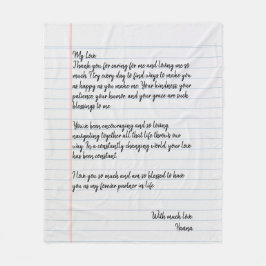 My Love
Thank you for caring for me and loving me so
much. I try every day to find ways to make you
as happy as you make me. Your kindness, your
patience, your humor, and your grace are such
blessings to me.
You've been encouraging and so loving
navigating together all that life throws our
way. In a constantly changing world, your love
has been constant.
I love you so much and am so blessed to have
you as my forever partner in life.
With much love